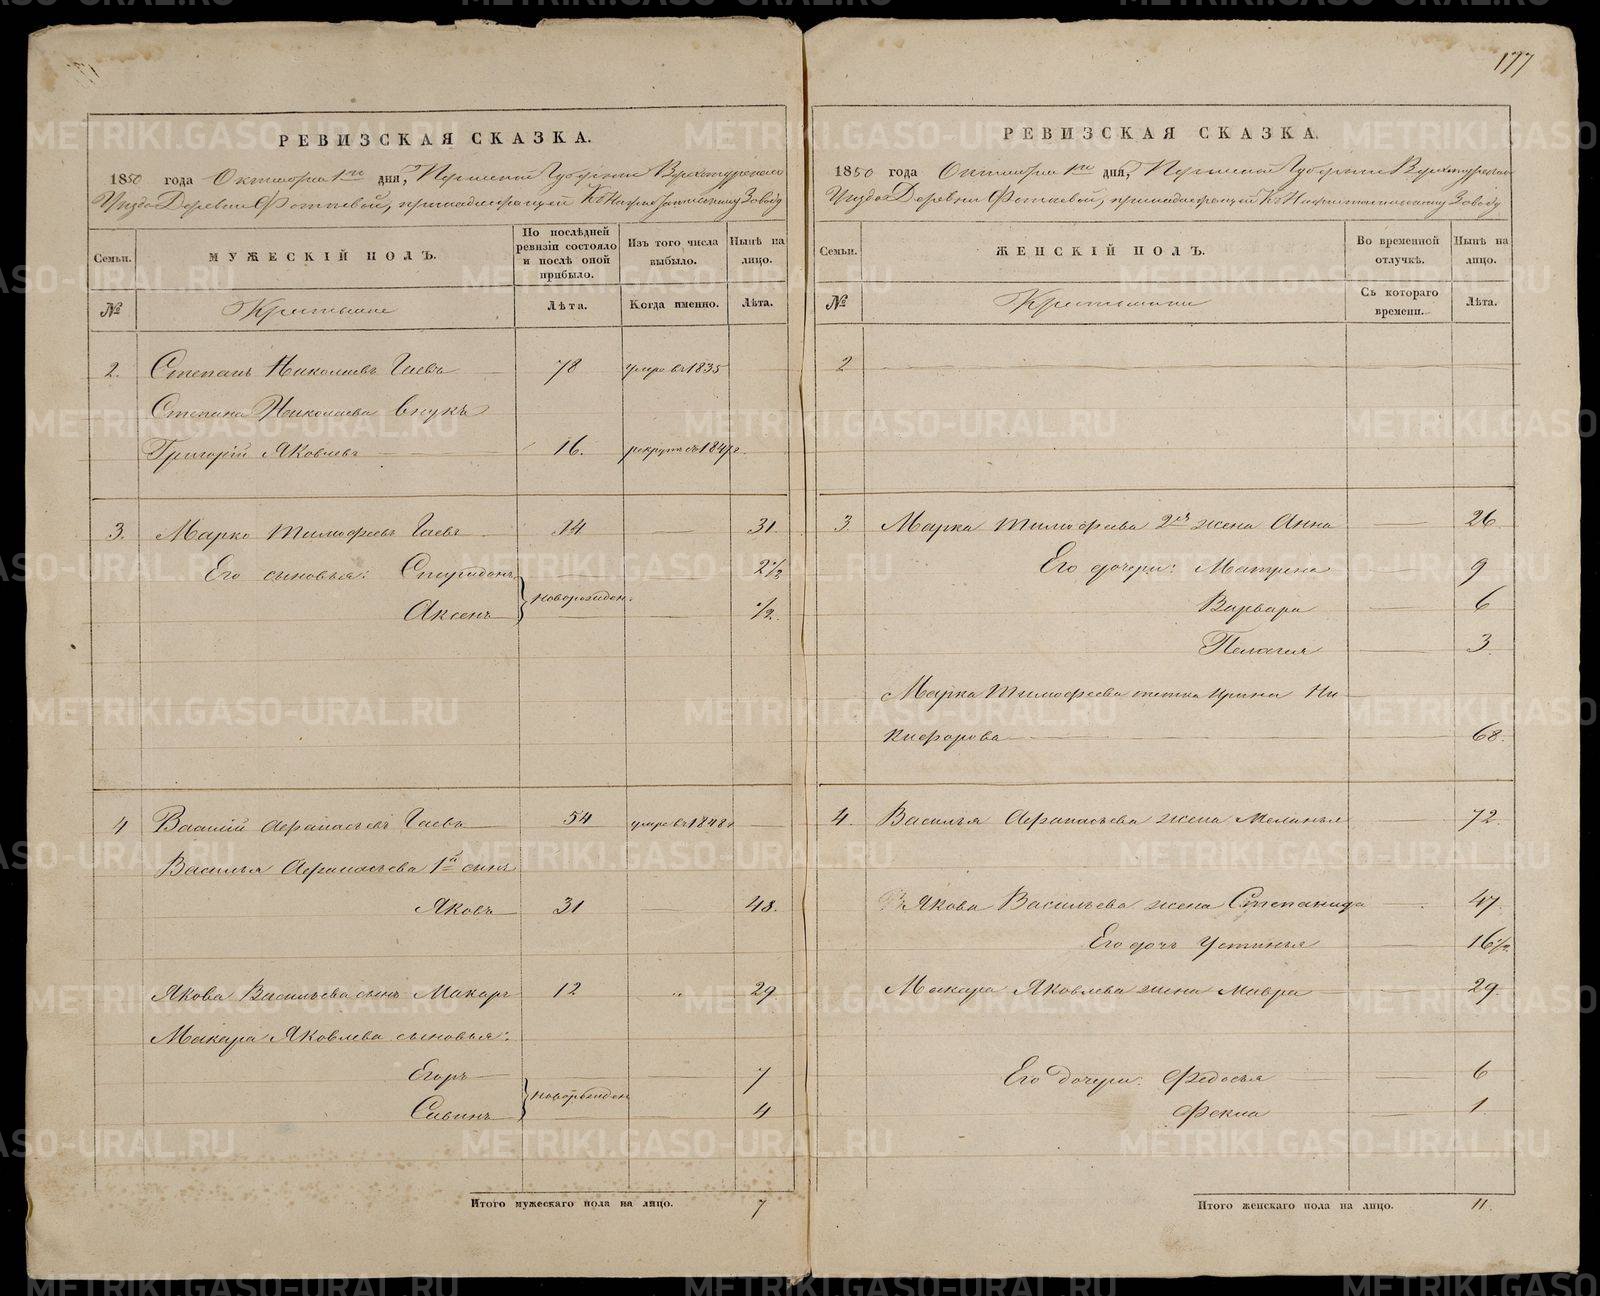 177
РЕВИЗСКАЯ СКАЗКА.
1850 года Октября 1го дня, Пермской Губернии Верхотурскаго
Уезда Деревни Фотеевой, принадлежащей Къ Заводу
Семьи. МУЖЕСКІЙ ПОЛЪ. По послѣдней ревизіи состояло и послѣ оной прибыло. Изъ того числа выбыло. Нынѣ на лицо.
№ Крестьяне Лѣта. Когда именно. Лѣта.
2. Степанъ Николаевъ Гаевъ 78 умре въ 1835
Степана Николаева внукъ
Григорій Яковлевъ 16. рекрутъ съ 1847 г.
3. Марко Тимофеевъ Гаевъ 14 31.
Его сыновья: Спиридонъ 2 1/2
новорожден.
Аксенъ 1/2.
4 Василій Афанасьевъ Гаевъ 54 умре въ 1848 г
Василья Афанасьева 1й сынъ
Яковъ 31 48.
Якова Васильева сынъ Макаръ 12 „ 29
Макара Яковлева сыновья:
Егоръ 7
новорожден
Савинъ 4
Итого мужескаго пола на лицо. 7
РЕВИЗСКАЯ СКАЗКА.
1850 года Октября 1го дня, Пермской Губернии Верхотурскаго
Уезда Деревни Фотеевой, принадлежащей Къ Заводу
Семьи. ЖЕНСКІЙ ПОЛЪ. Во временной отлучкѣ. Нынѣ на лицо.
№ Крестьянки Съ котораго времени. Лѣта.
2
3 Марка Тимофеева 2я жена Анна 26
Его дочери: Матрена 9
Варвара 6
Пелагия 3.
Марка Тимофеева тетка Ирина Ни
кифорова 68.
4. Василья Афанасьева жена Меланья 72
Якова Васильева жена Степанида 47
Его дочь Устинья 16 1/2
Макара Яковлева жена Мавра 29
Его дочери: Федосья 6
Фекла 1.
Итого женскаго пола на лицо. 11.
METRIKI.GASO-URAL.RU